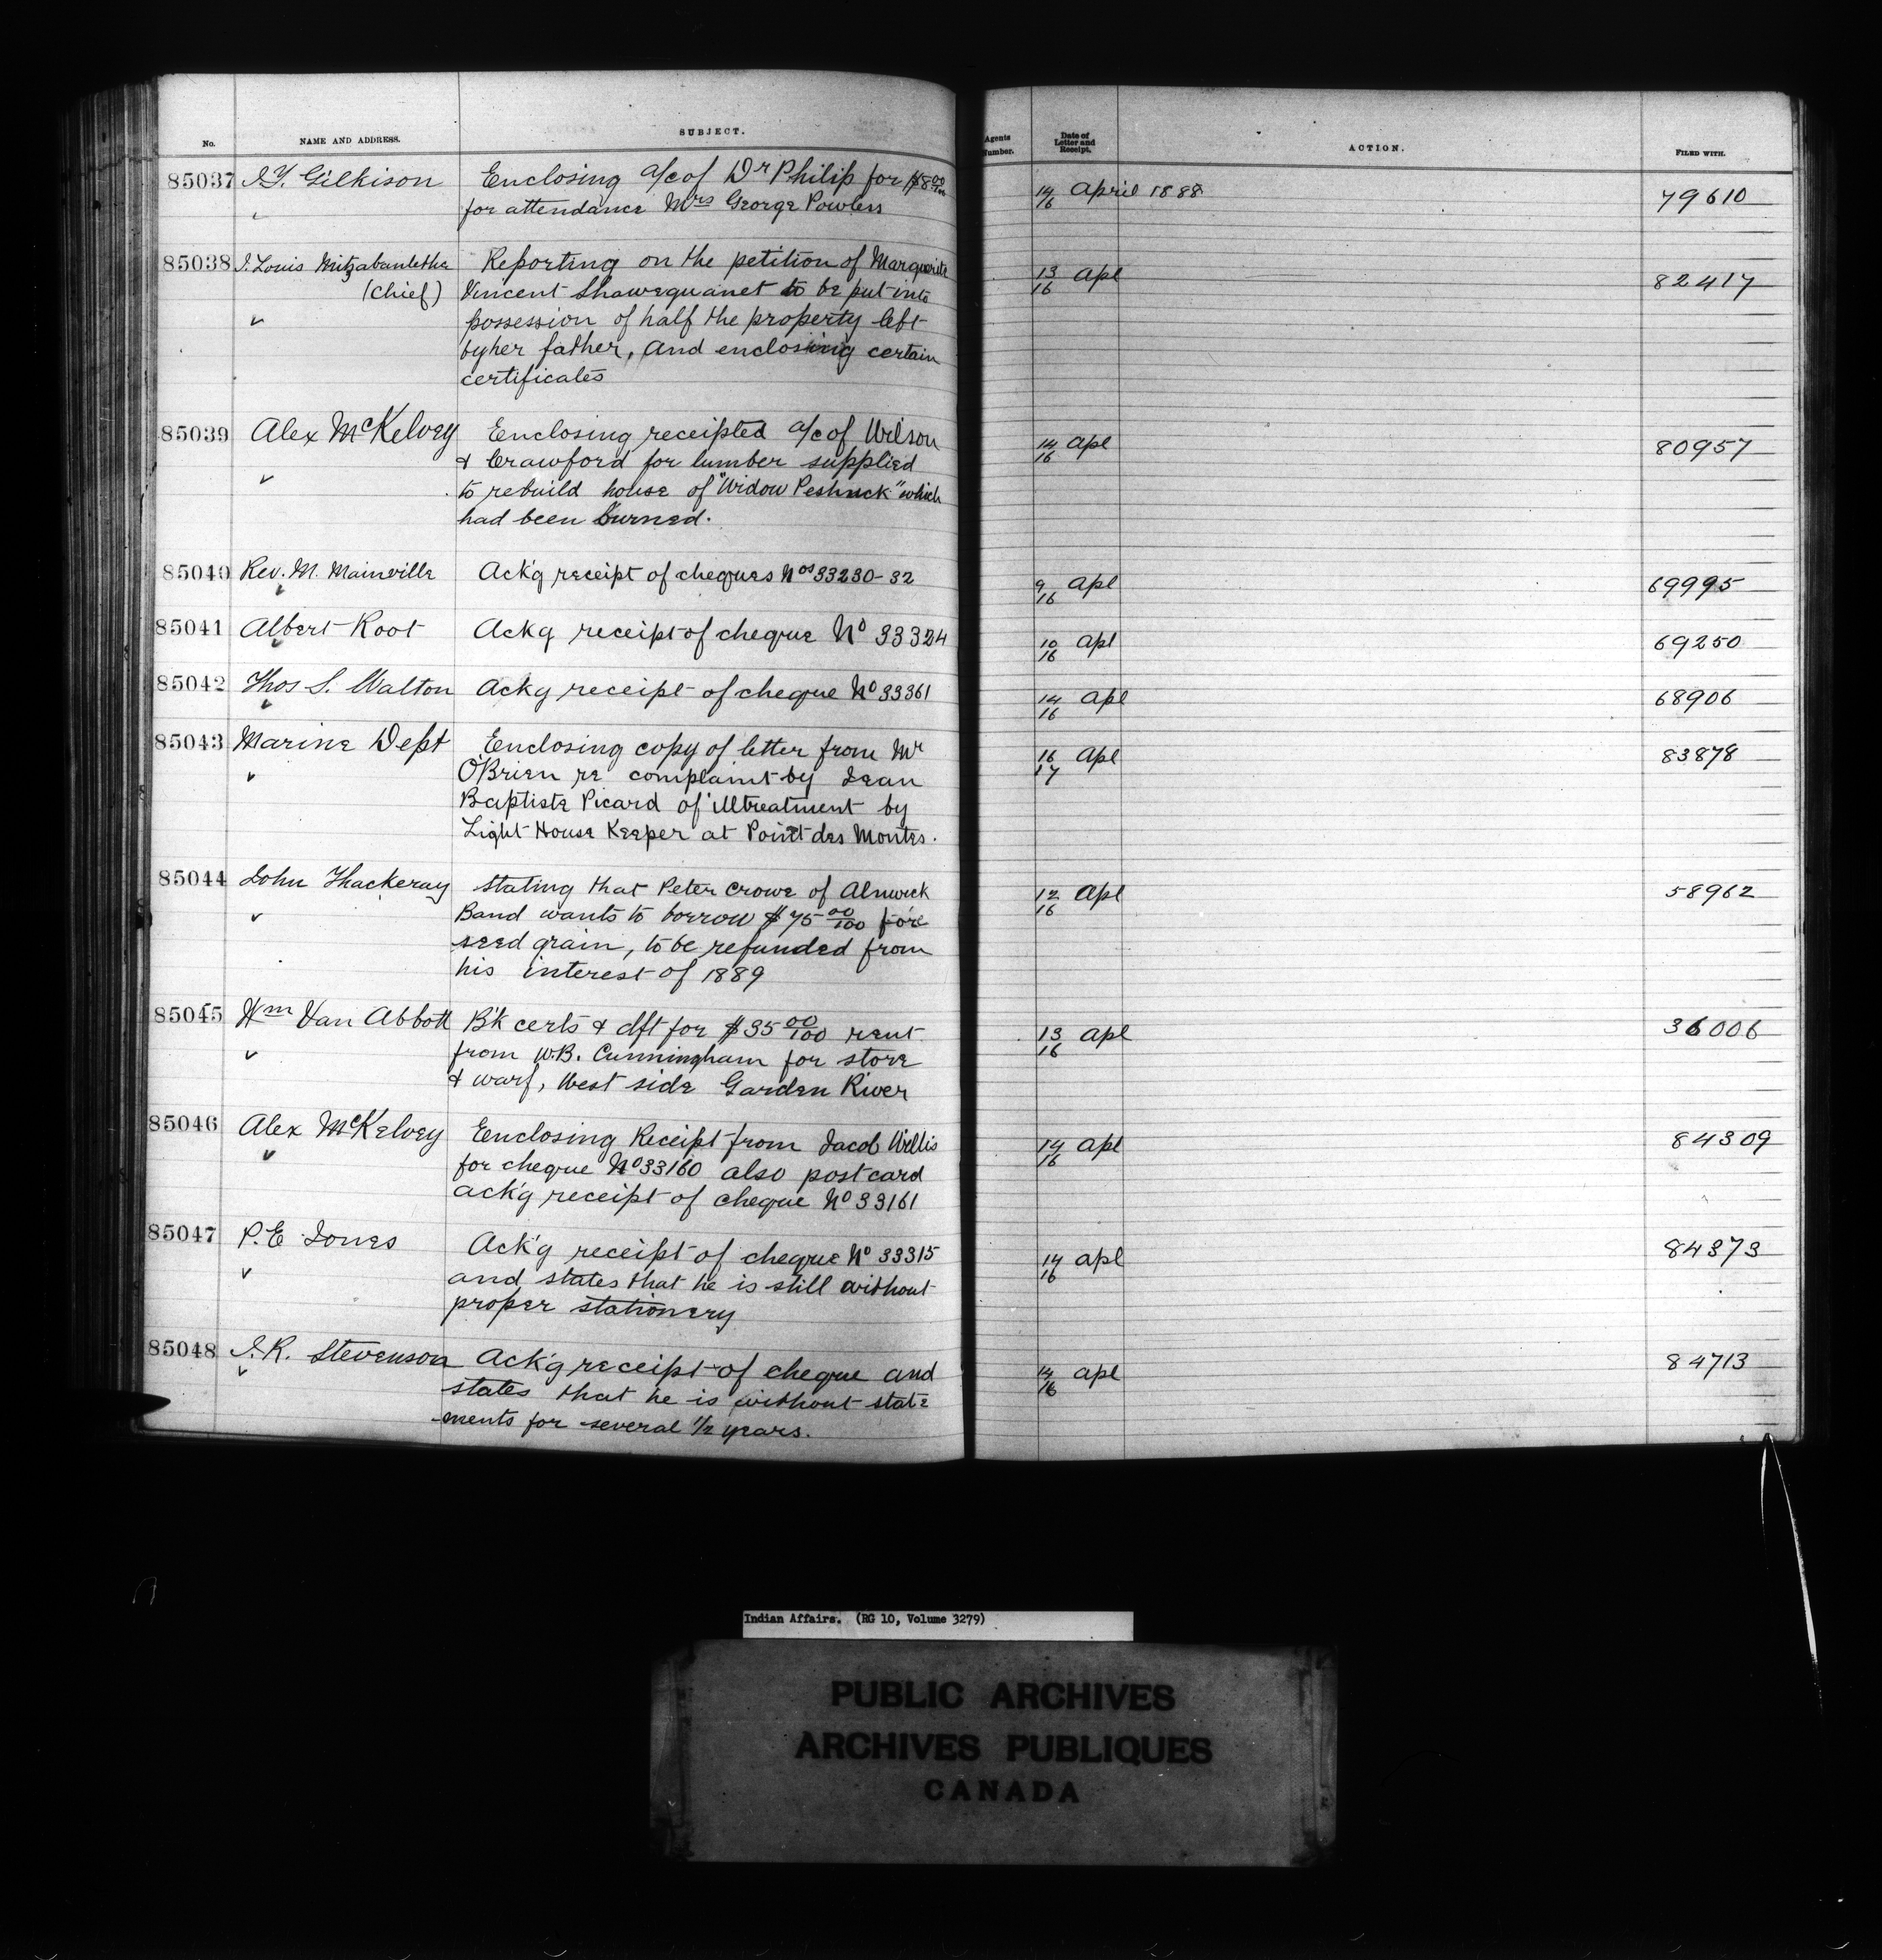 No. NAME AND ADDRESS. SUBJECT. Agents Number. Date of Letter and Receipt. ACTION. FILED WITH.
85037 J.T. Gilkison Enclosing a/c of Dr Philip for $8 00/100 14/16 April 1888 79610
for attendance Mrs George Powless
85038 J. Louis Reporting on the petition of Marguerite 13/16 Apl 82417
(Chief) Vincent Shawequanet to be put into
possession of half the property left
by her father, and enclosing certain
certificates
85039 Alex McKelvey Enclosing receipted a/c of Wilson 14/16 Apl 80957
& Crawford for lumber supplied
to rebuild house of "Widow Peshuck" which
had been burned.
85040 Rev. M. Mainville Ack'g receipt of cheques Nos 33230-32 9/16 Apl 69995
85041 Albert Root Ackg receipt of cheque No 33324 10/16 Apl 69250
85042 Thos S. Walton Ackg receipt of cheque No 33361 14/16 Apl 68906
85043 Marine Dept Enclosing copy of letter from Mr 16/17 Apl 83878
O'Brien re complaint by Jean
Baptiste Picard of illtreatment by
Light House Keeper at Point des Montes.
85044 John Thackeray stating that Peter Crowe of Alnwick 12/16 Apl 58962
Band wants to borrow $75 00/100 for
seed grain, to be refunded from
his interest of 1889
85045 Wm Van Abbott B'k certs & dft for $35 00/100 rent 13/16 Apl 36006
from W.B. Cunningham for store
& warf, West side Garden River
85046 Alex McKelvey Enclosing Receipt from Jacob Willis 14/16 Apl 84309
for cheque No 33160 also post card
ack'g receipt of cheque No 33161
85047 P.E Jones Ack'g receipt of cheque No 33315 14/16 apl 84373
and states that he is still without
proper stationery
85048 J.R. Stevenson Ack'g receipt of cheque and 14/16 apl 84713
states that he is without state
ments for several 1/2 years.
Indian Affairs. (RG 10, Volume 3279)
PUBLIC ARCHIVES
ARCHIVES PUBLIQUES
CANADA